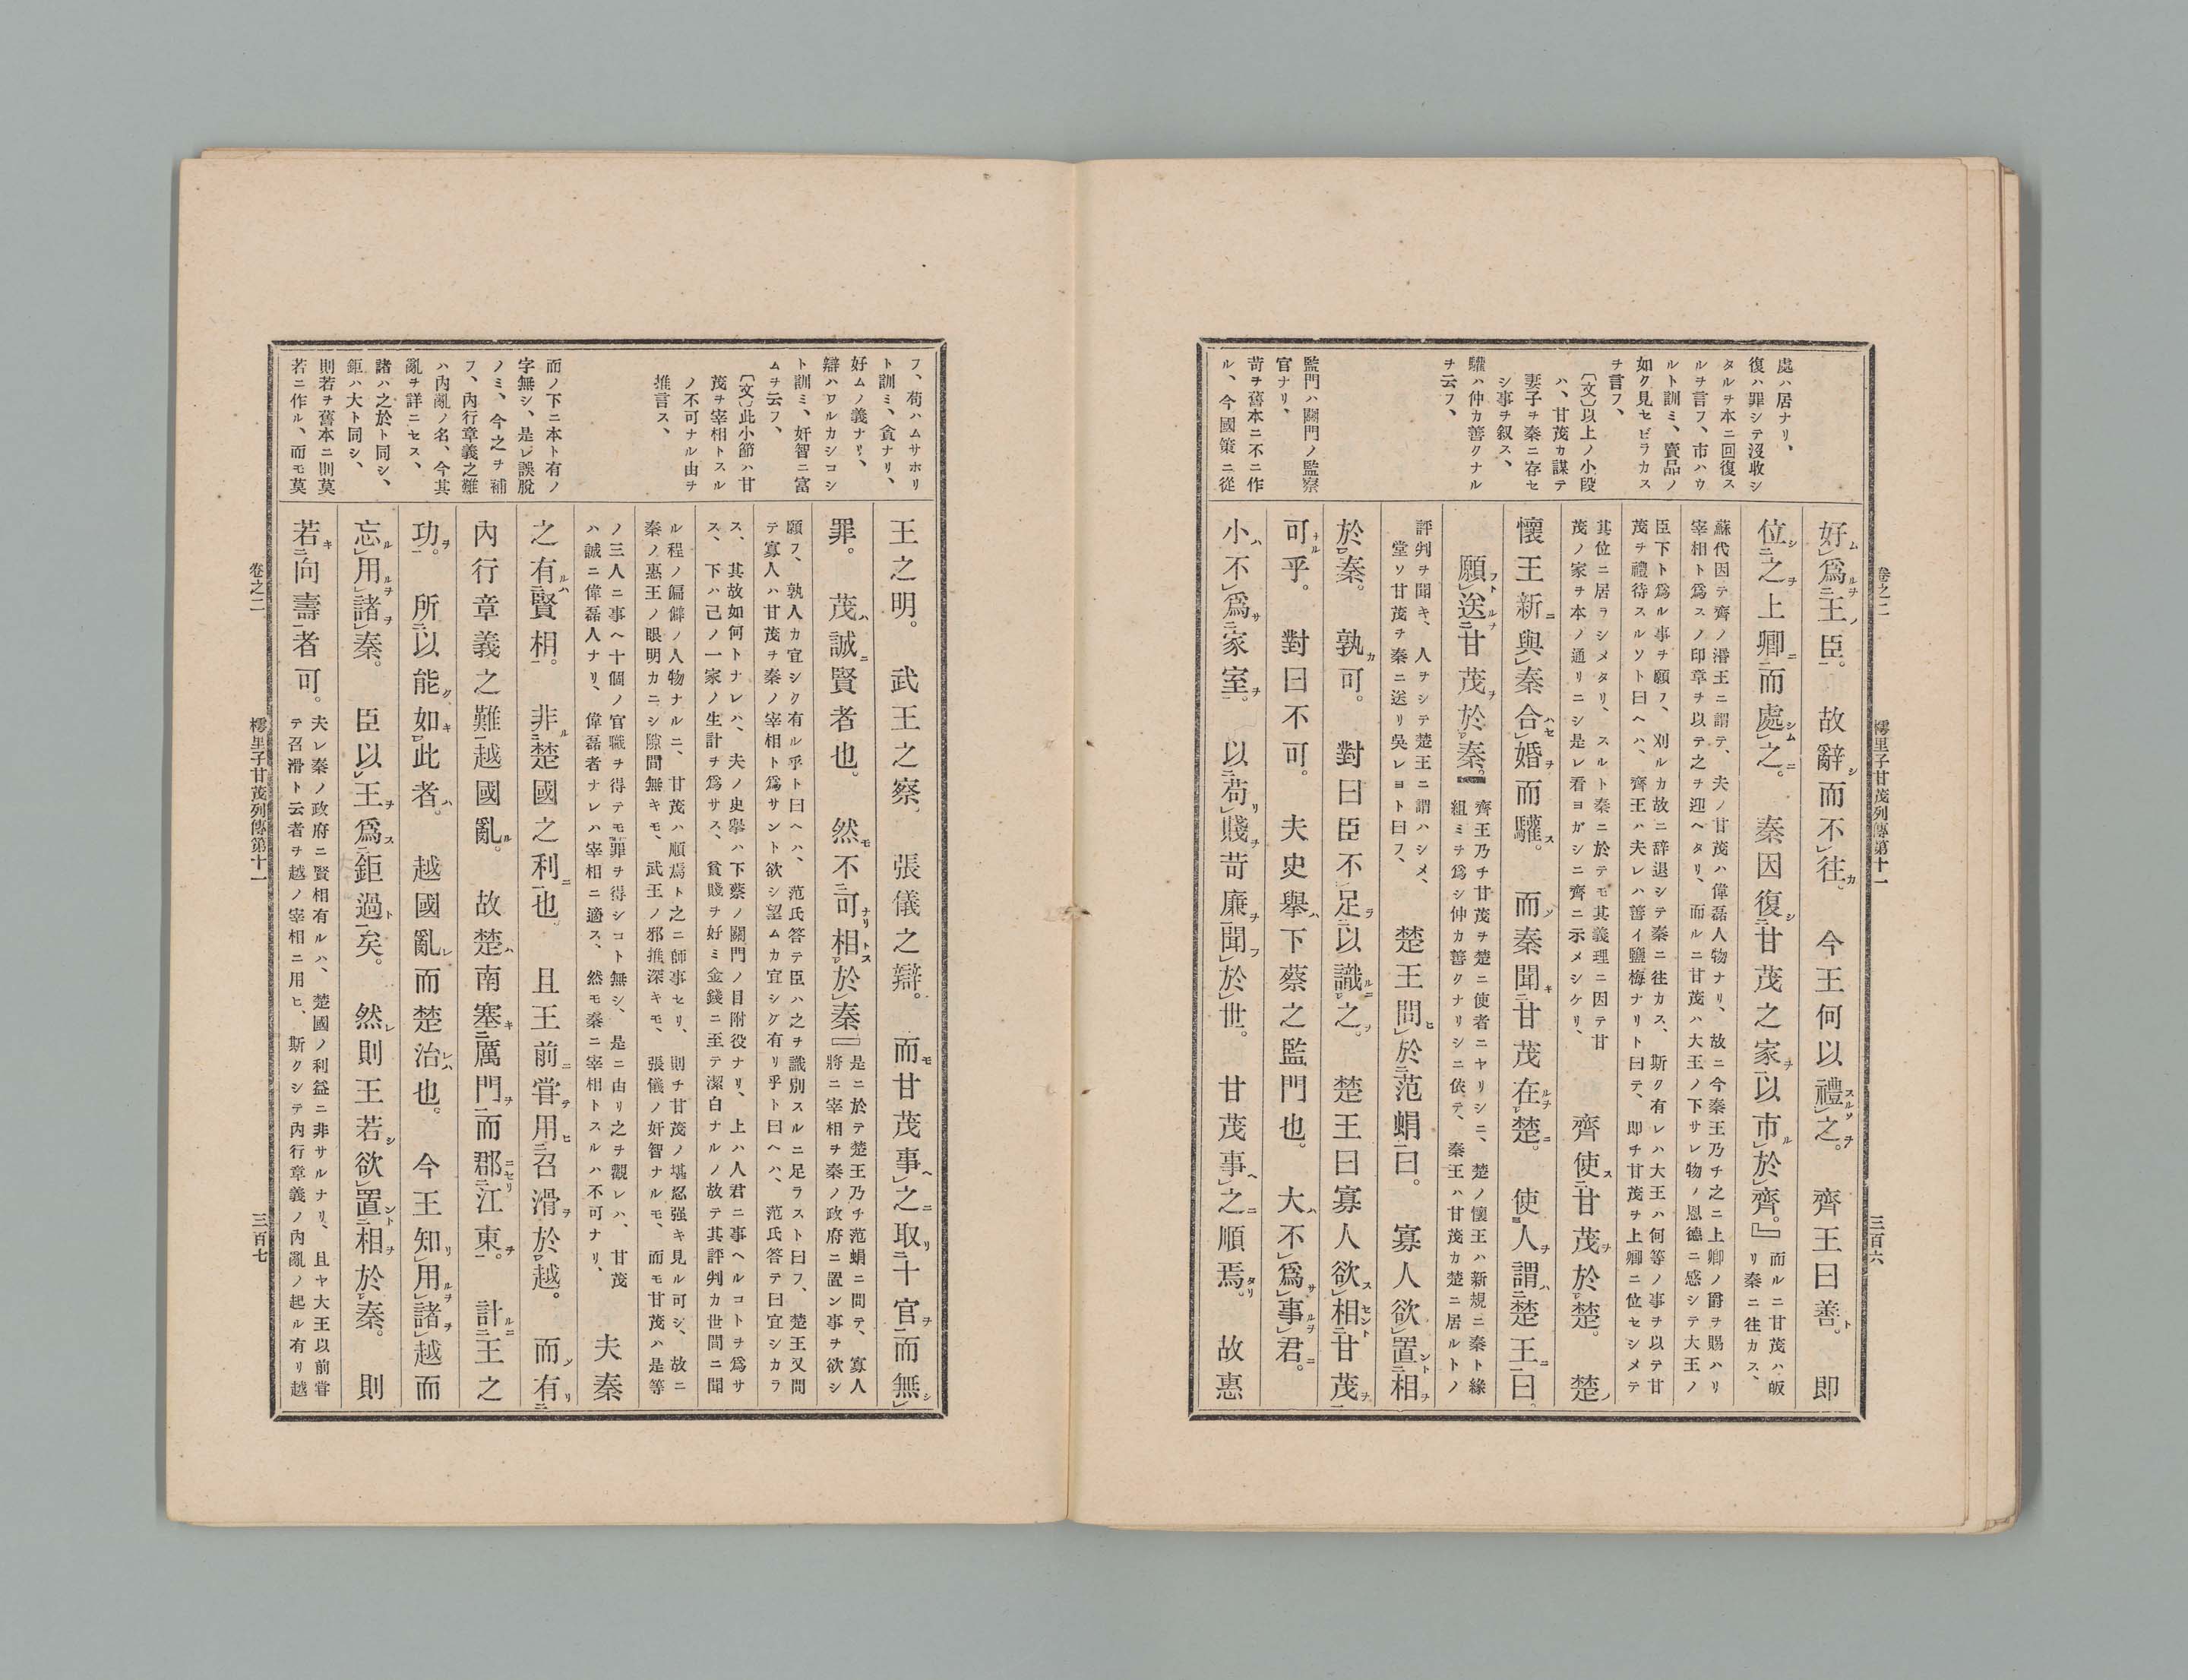 卷之二　樗里子甘茂列傳第十一　三百六
處ハ居ナリ、
復ハ罪シテ沒收シ
タルヲ本ニ回復ス
ルヲ言フ、市ハウ
ルト訓ミ、賣品ノ
如ク見セビラカス
ヲ言フ、
〔文〕以上ノ小段
ハ、甘茂カ謀テ
妻子ヲ秦ニ存セ
シ事ヲ叙ス、
驩ハ仲カ善クナル
ヲ云フ、
監門ハ關門ノ監察
官ナリ、
苛ヲ舊本ニ不ニ作
ル、今國策ニ從
好爲王臣。故辭而不往。今王何以禮之。齊王曰善。即
位之上卿而處之。秦因復甘茂之家以市於齊。』而ルニ甘茂ハ皈
リ秦ニ往カス、
蘇代因テ齊ノ湣王ニ謂テ、夫ノ甘茂ハ偉磊人物ナリ、故ニ今秦王乃チ之ニ上卿ノ爵ヲ賜ハリ
宰相ト爲スノ印章ヲ以テ之ヲ迎ヘタリ、而ルニ甘茂ハ大王ノ下サレ物ノ恩德ニ感シテ大王ノ
臣下ト爲ル事ヲ願フ、刈ルカ故ニ辞退シテ秦ニ往カス、斯ク有レハ大王ハ何等ノ事ヲ以テ甘
茂ヲ禮待スルソト曰ヘハ、齊王ハ夫レハ善イ鹽梅ナリト曰テ、即チ甘茂ヲ上卿ニ位セシメテ
其位ニ居ラシメタリ、スルト秦ニ於テモ其義理ニ因テ甘
茂ノ家ヲ本ノ通リニシ是レ看ヨガシニ齊ニ示メシケリ、
齊使甘茂於楚。楚
懷王新與秦合婚而驩。而秦聞甘茂在楚。使人謂楚王曰。
願送甘茂於秦。齊王乃チ甘茂ヲ楚ニ使者ニヤリシニ、楚ノ懷王ハ新規ニ秦ト緣
組ミヲ爲シ仲カ善クナリシニ依テ、秦王ハ甘茂カ楚ニ居ルトノ
評判ヲ聞キ、人ヲシテ楚王ニ謂ハシメ、
堂ソ甘茂ヲ秦ニ送リ吳レヨト曰フ、
楚王問於范蜎曰。寡人欲置相
於秦。孰可。對曰臣不足以識之。楚王曰寡人欲相甘茂
可乎。對曰不可。夫史擧下蔡之監門也。大不爲事君。
小不爲家室。以苟賤苛廉聞於世。甘茂事之順焉。故惠
フ、苟ハムサホリ
ト訓ミ、貪ナリ、
好ムノ義ナリ、
辯ハワルカシコシ
ト訓ミ、奸智ニ富
ムヲ云フ、
〔文〕此小節ハ甘
茂ヲ宰相トスル
ノ不可ナル由ヲ
推言ス、
而ノ下ニ本ト有ノ
字無シ、是レ誤脫
ノミ、今之ヲ補
フ、內行章義之難
ハ內亂ノ名、今其
亂ヲ詳ニセス、
諸ハ之於ト同シ、
鉅ハ大ト同シ、
則若ヲ舊本ニ則莫
若ニ作ル、而モ莫
王之明。武王之察、張儀之辯。而甘茂事之取十官而無
罪。茂誠賢者也。然不可相於秦』是ニ於テ楚王乃チ范蜎ニ問テ、寡人
將ニ宰相ヲ秦ノ政府ニ置ン事ヲ欲シ
願フ、孰人カ宜シク有ル乎ト曰ヘハ、范氏答テ臣ハ之ヲ識別スルニ足ラスト曰フ、楚王又問
テ寡人ハ甘茂ヲ秦ノ宰相ト爲サント欲シ望ムカ宜シケ有リ乎ト曰ヘハ、范氏答テ曰宜シカラ
ス、其故如何トナレハ、夫ノ史擧ハ下蔡ノ關門ノ目附役ナリ、上ハ人君ニ事ヘルコトヲ爲サ
ス、下ハ己ノ一家ノ生計ヲ爲サス、貧賤ヲ好ミ金錢ニ至テ潔白ナルノ故テ其評判カ世間ニ聞
ル程ノ偏僻ノ人物ナルニ、甘茂ハ順焉ト之ニ師事セリ、則チ甘茂ノ堪忍强キ見ル可シ、故ニ
秦ノ惠王ノ眼明カニシ隙間無キモ、武王ノ邪推深キモ、張儀ノ奸智ナルモ、而モ甘茂ハ是等
ノ三人ニ事ヘ十個ノ官職ヲ得テモ罪ヲ得シコト無シ、是ニ由リ之ヲ觀レハ、甘茂
ハ誠ニ偉磊人ナリ、偉磊者ナレハ宰相ニ適ス、然モ秦ニ宰相トスルハ不可ナリ、
夫秦
之有賢相。非楚國之利也。且王前甞用召滑於越。而有
內行章義之難越國亂。故楚南塞厲門而郡江東。計王之
功。所以能如此者。越國亂而楚治也。今王知用諸越而
忘用諸秦。臣以王爲鉅過矣。然則王若欲置相於秦。則
若向壽者可。夫レ秦ノ政府ニ賢相有ルハ、楚國ノ利益ニ非サルナリ、且ヤ大王以前甞
テ召滑ト云者ヲ越ノ宰相ニ用ヒ、斯クシテ內行章義ノ內亂ノ起ル有リ越
卷之二　樗里子甘茂列傳第十一　三百七